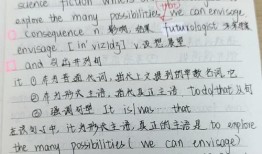 science fiction writers
explore the many possibilities we can envisage
consequence n. 影响, 结果 futurologist 未来学家
envisage [inˈvizidʒ] v. 设想, 展望
and 并列句
it ① 作为普通代词, 指代上文提到的单数名词 it
② 作为形式主语, 指代主语 To do that 从句
③ 强调句型 It is/was … that
在该句子中, it 为形式主语, 真正的主语是 to explore
the many possibilities (we can envisage)